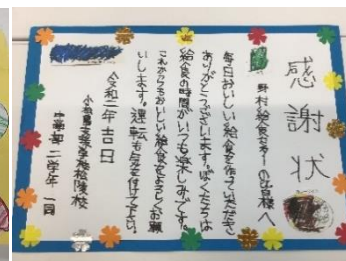 感謝状
野村給食センターの皆様へ
毎日おいしい給食を作っていただき
ありがとうございます。ぼくたちは
給食の時間がいつも楽しみです。
これからもおいしい給食をよろしくお願
いします。運転も気を付けて下さい。
令和二年吉日
中学部二学年一同